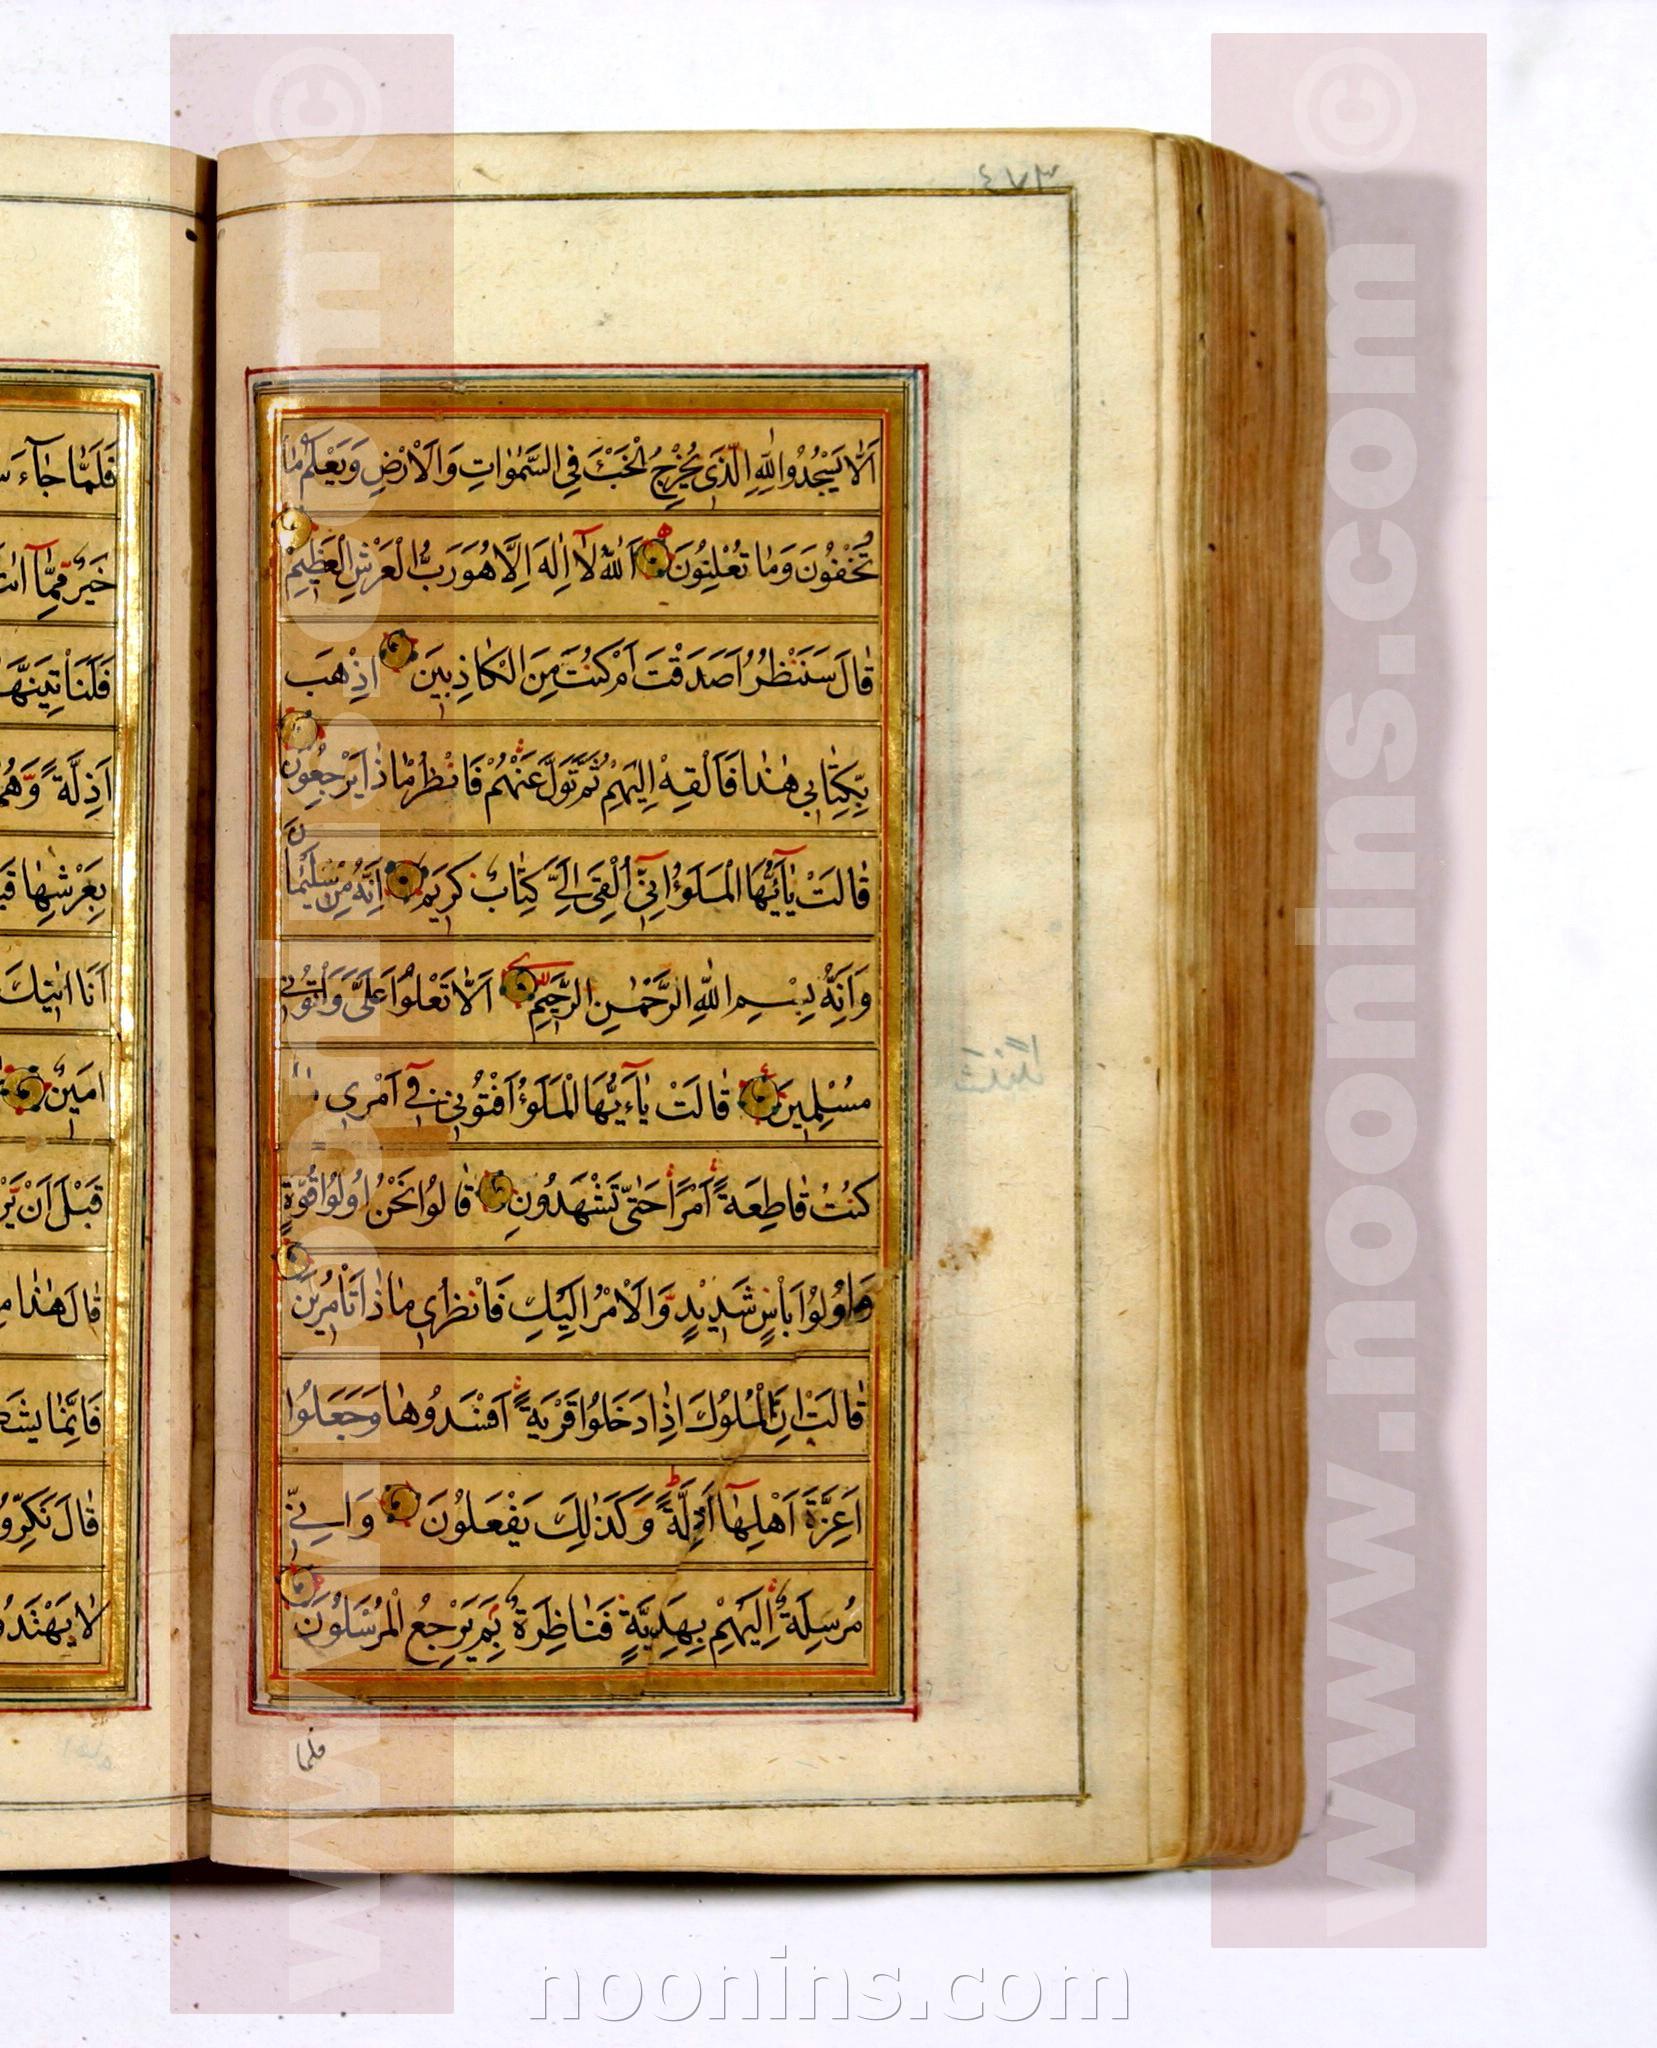 اَلَّا يَسْجُدُوا لِلّٰهِ الَّذِي يُخْرِجُ الْخَبْءَ فِي السَّمٰوَاتِ وَالْاَرْضِ وَيَعْلَمُ مَا
تُخْفُونَ وَمَا تُعْلِنُونَ اَللّٰهُ لَآ اِلٰهَ اِلَّا هُوَ رَبُّ الْعَرْشِ الْعَظِيمِ
قَالَ سَنَنْظُرُ اَصَدَقْتَ اَمْ كُنْتَ مِنَ الْكَاذِبِينَ اِذْهَبْ
بِكِتَابِي هٰذَا فَاَلْقِهْ اِلَيْهِمْ ثُمَّ تَوَلَّ عَنْهُمْ فَانْظُرْ مَاذَا يَرْجِعُونَ
قَالَتْ يَآ اَيُّهَا الْمَلَؤُا اِنِّيٓ اُلْقِيَ اِلَيَّ كِتَابٌ كَرِيمٌ اِنَّهُ مِنْ سُلَيْمَانَ
وَاِنَّهُ بِسْمِ اللّٰهِ الرَّحْمٰنِ الرَّحِيمِ اَلَّا تَعْلُوا عَلَيَّ وَأْتُونِي
مُسْلِمِينَ قَالَتْ يَآ اَيُّهَا الْمَلَؤُا اَفْتُونِي فِيٓ اَمْرِي
كُنْتُ قَاطِعَةً اَمْرًا حَتّٰى تَشْهَدُونِ قَالُوا نَحْنُ اُولُوا قُوَّةٍ
وَاُولُوا بَأْسٍ شَدِيدٍ وَالْاَمْرُ اِلَيْكِ فَانْظُرِي مَاذَا تَأْمُرِينَ
قَالَتْ اِنَّ الْمُلُوكَ اِذَا دَخَلُوا قَرْيَةً اَفْسَدُوهَا وَجَعَلُوا
اَعِزَّةَ اَهْلِهَآ اَذِلَّةً وَكَذٰلِكَ يَفْعَلُونَ وَاِنِّي
مُرْسِلَةٌ اِلَيْهِمْ بِهَدِيَّةٍ فَنَاظِرَةٌ بِمَ يَرْجِعُ الْمُرْسَلُونَ
فلما
فَلَمَّا جَآءَ
خَيْرٌ مِمَّآ
فَلَنَأْتِيَنَّهُمْ
اَذِلَّةً وَهُمْ
بِعَرْشِهَا
اَنَا اٰتِيكَ
اَمِينٌ
قَبْلَ اَنْ
قَالَ هٰذَا
فَاِنَّمَا
قَالَ نَكِّرُوا
لَا يَهْتَدُونَ
www.noonins.com ©
www.noonins.com ©
noonins.com